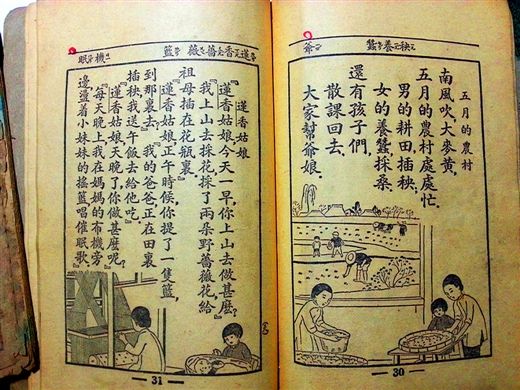 秧 養 蠶 爺
五月的農村
南風吹,大麥黃,
五月的農村處處忙.
男的耕田插秧,
女的養蠶採桑.
還有孩子們,
散課回去,
大家幫爺娘.
30
蓮 香 薔 薇 籃 機 眠
蓮香姑娘
『蓮香姑娘,今天一早,你上山去做甚麼?』
『我上山去採花,採了兩朵野薔薇花,給
祖母插在花瓶裏.』
『蓮香姑娘,正午時候,你提了一隻籃,
到那裏去?』『我的爸爸正在田裏
插秧,我送午飯去給他吃.』
『蓮香姑娘,天晚了,你做甚麼呢?』
『每天晚上,我在媽媽的布機旁
邊,盪着小妹妹的搖籃,唱催眠歌.』
31